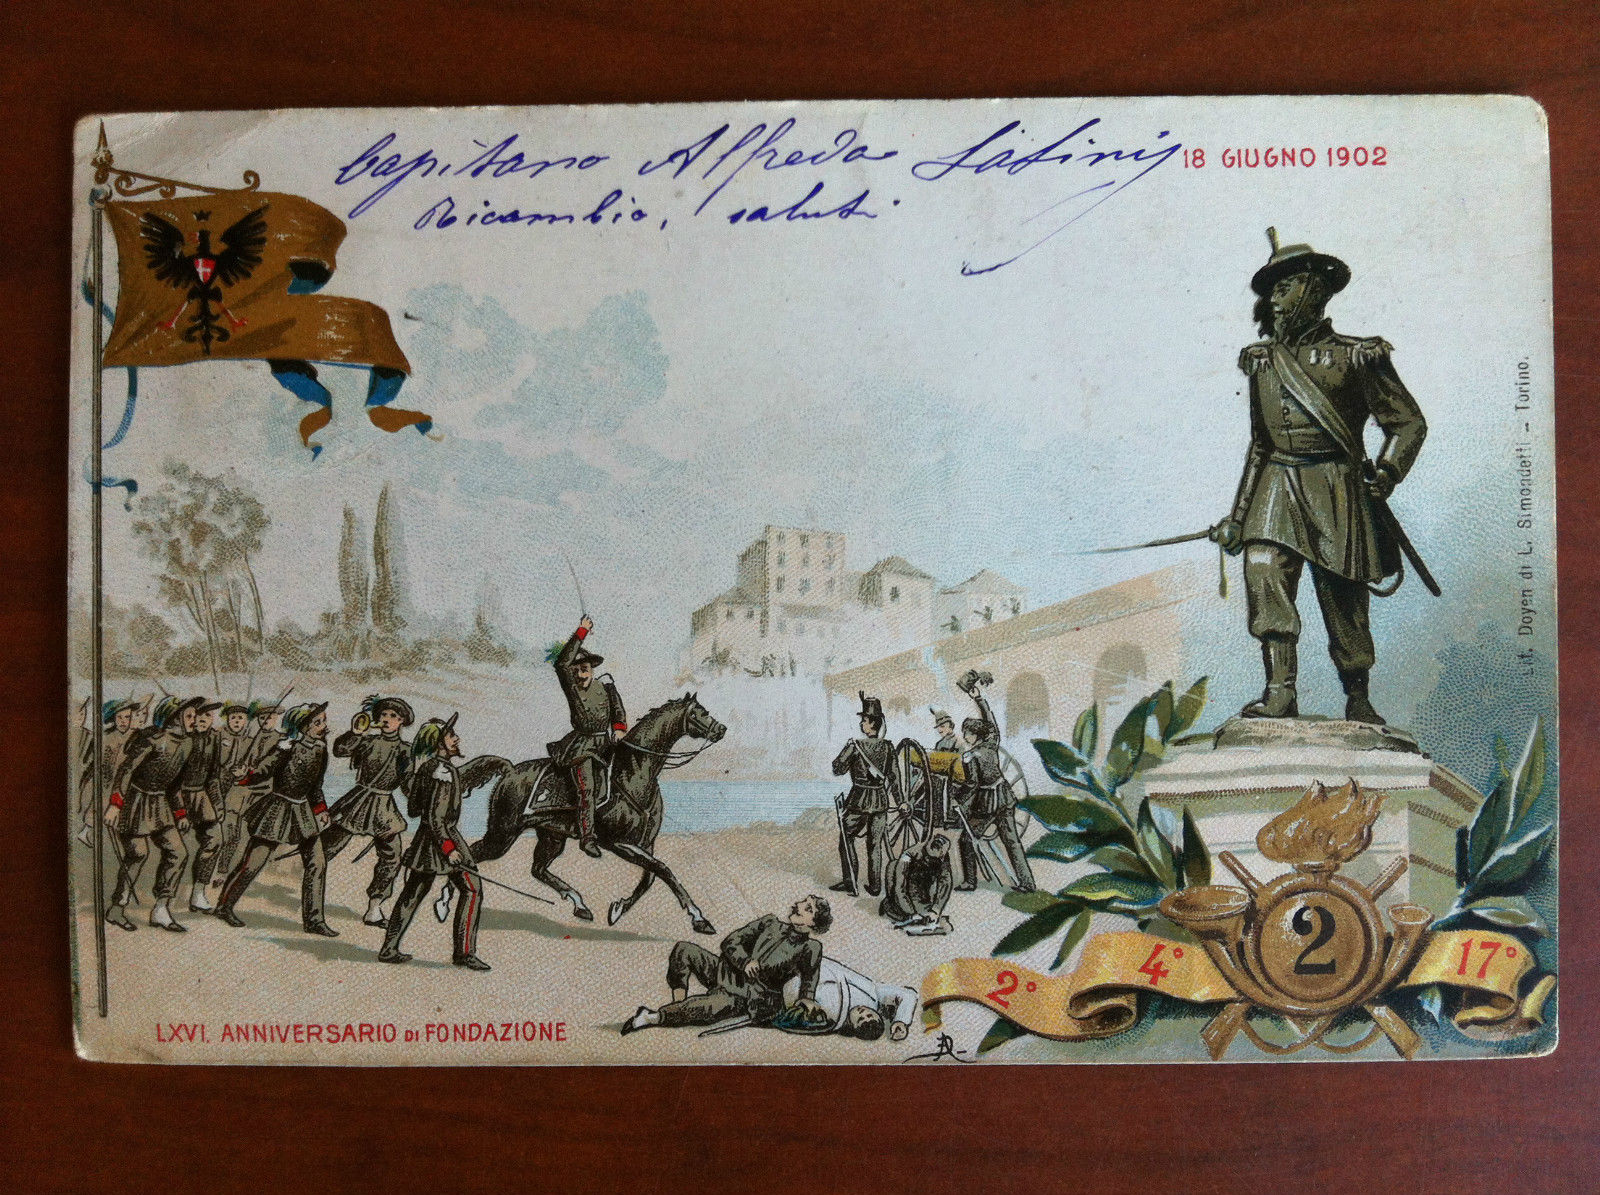 Capitano Alfredo Latini
Ricambio, saluti
18 GIUGNO 1902
Lit. Doyen di L. Simondetti - Torino.
2
2° 4° 17°
LXVI. ANNIVERSARIO DI FONDAZIONE